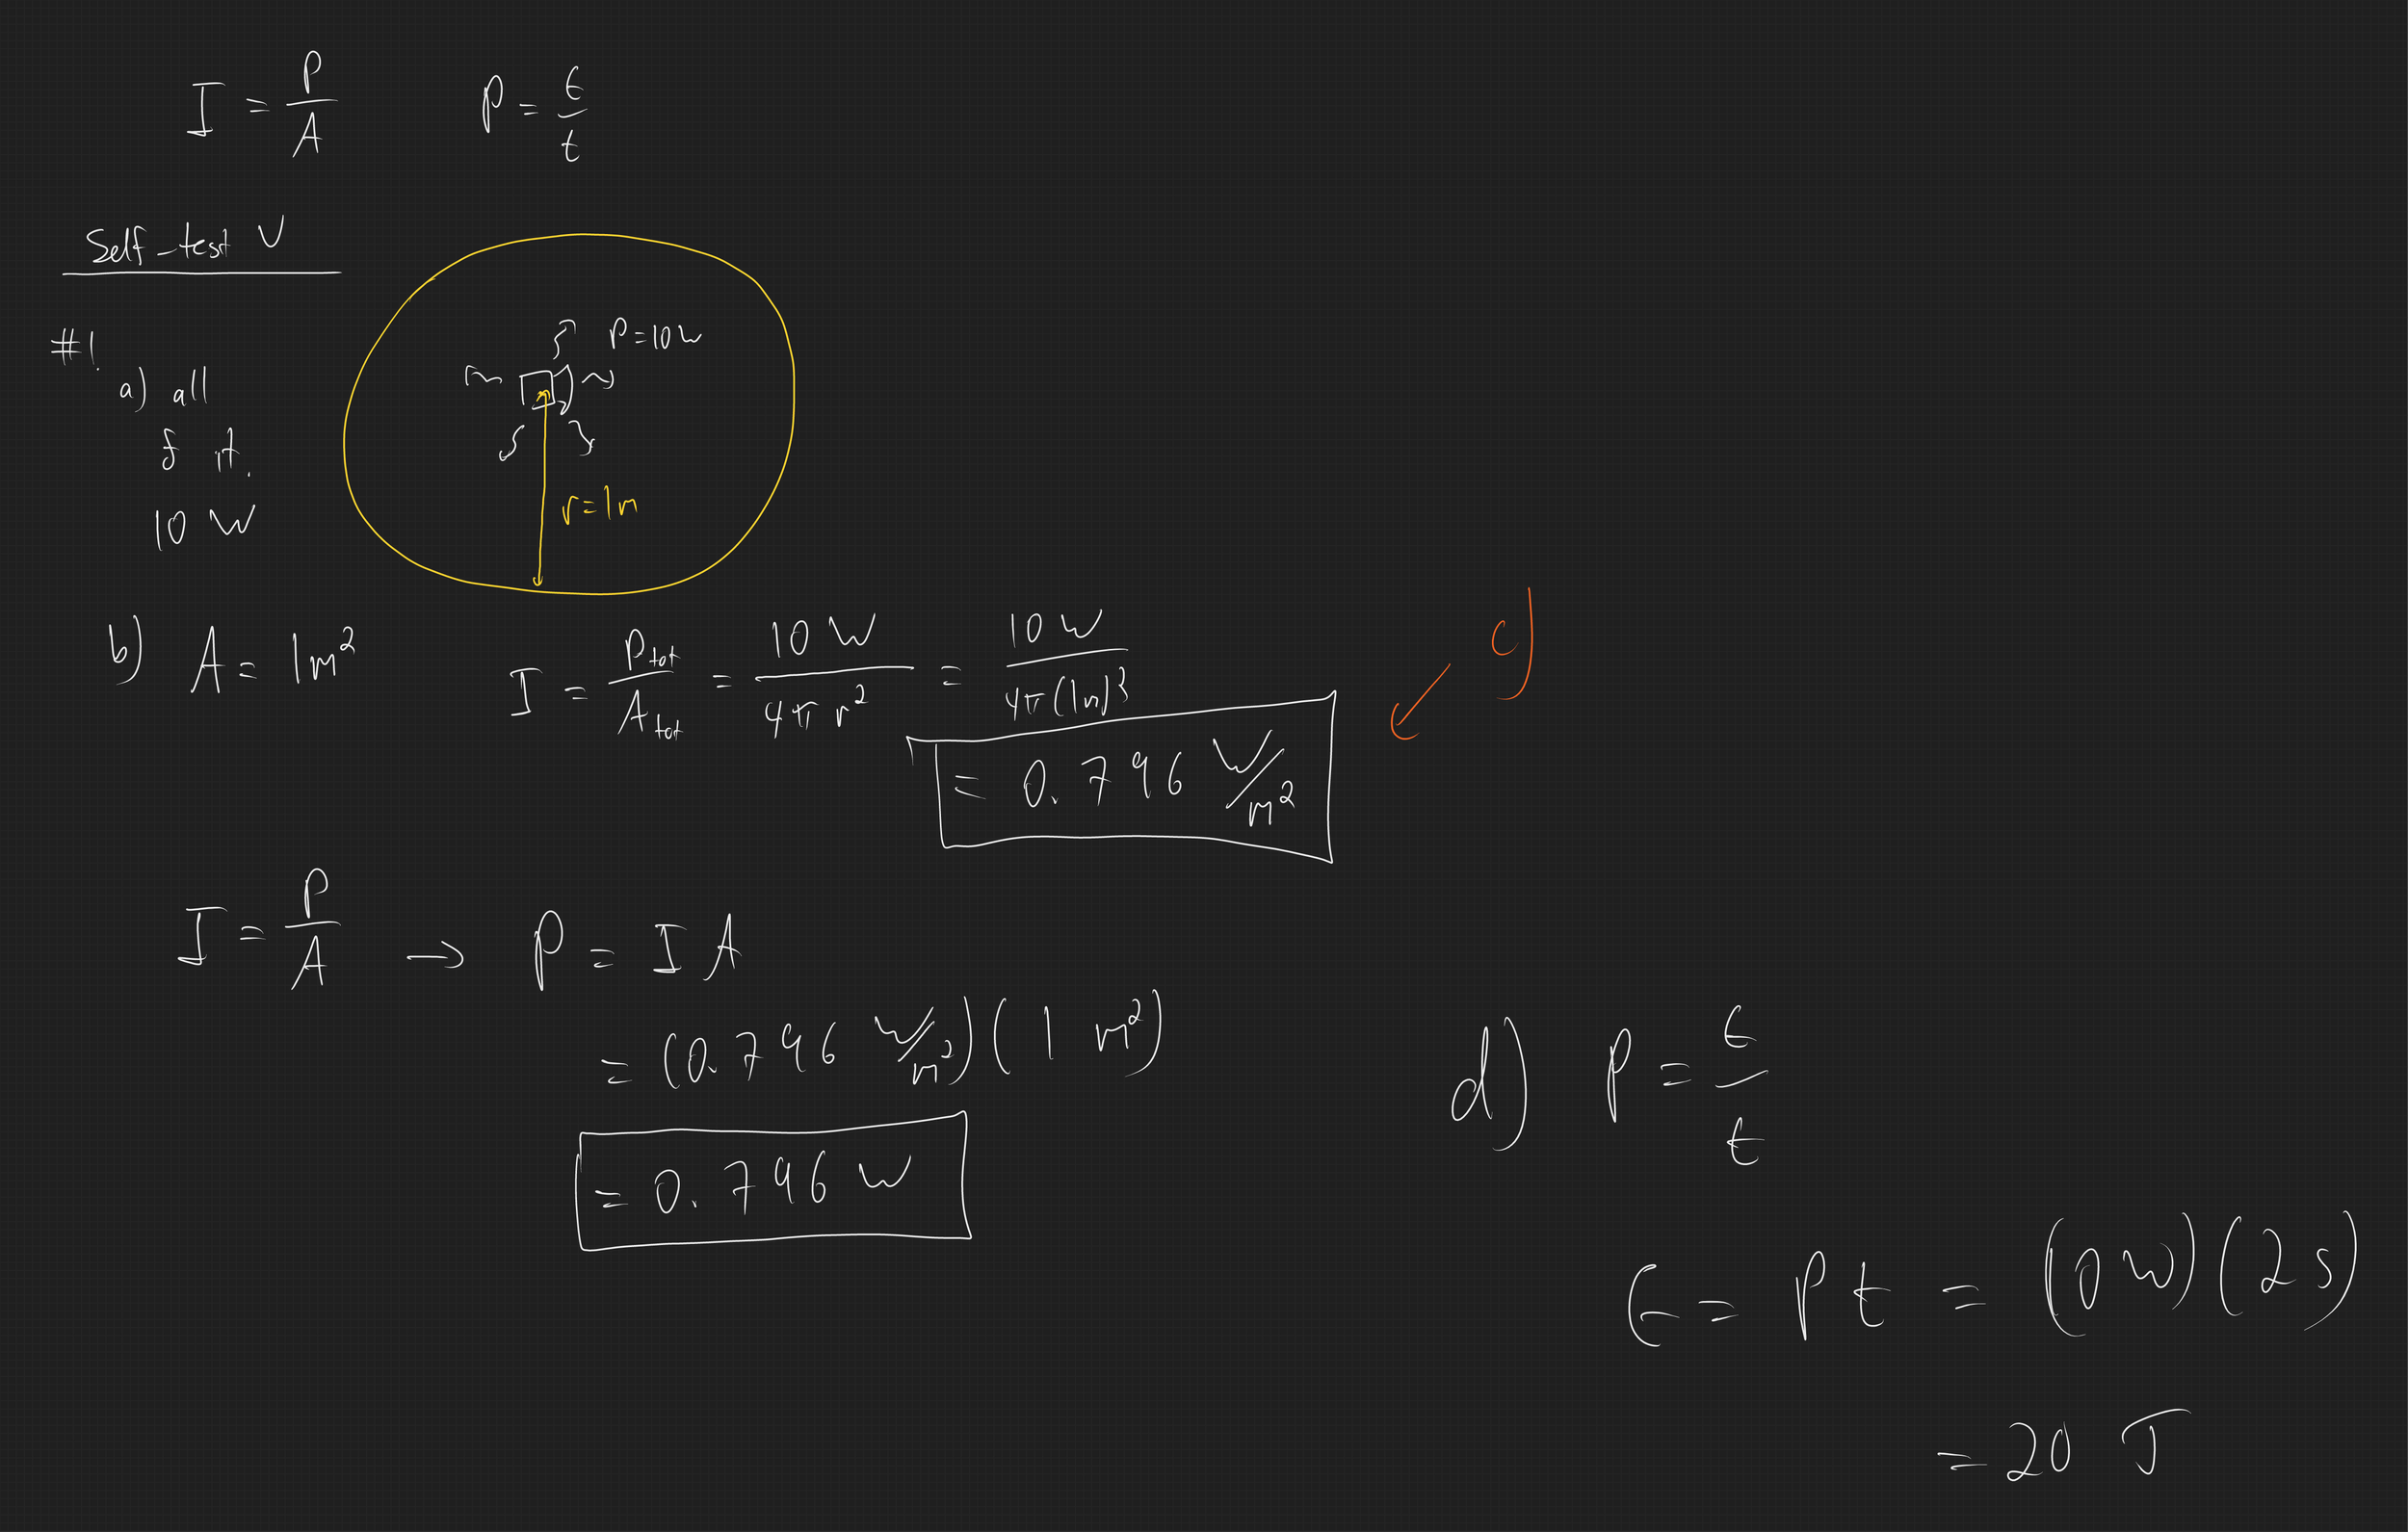 I = P/A    P = E/t
Self-test V
#1.
a) all
of it.
10 W
P = 10 W
r = 1m
b) A = 1m²    I = P_tot/A_tot = 10 W/4πr² = 10 W/4π(1m)²
= 0.796 W/m²
c)
I = P/A → P = I A
= (0.796 W/m²)(1 m²)
= 0.796 W
d) P = E/t
E = P t = (10 W)(2 s)
= 20 J